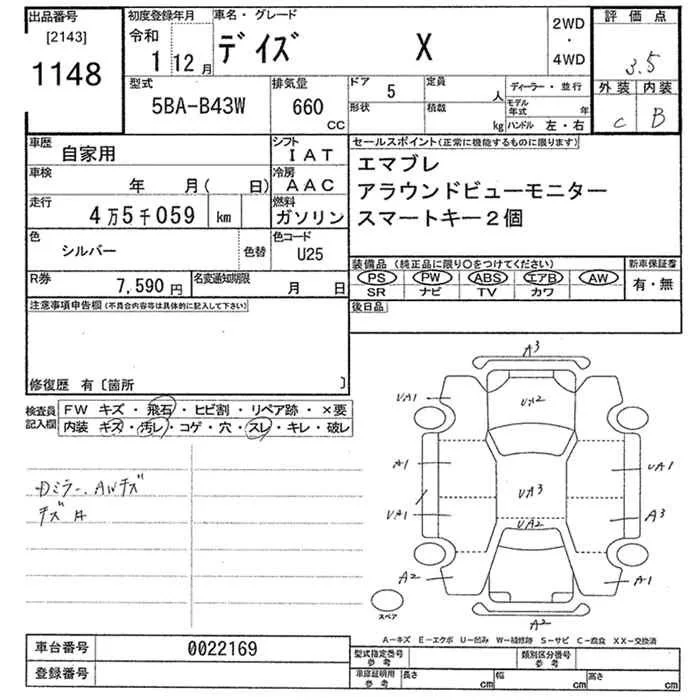 出品番号
[2143]
1148
初度登録年月
令和
1 12月
車名・グレード
デイズ X
2WD
・
4WD
評価点
3.5
外装 内装
C B
型式
5BA-B43W
排気量
660
CC
ドア 5
形状
定員 人
積載 kg
ディーラー・並行
モデル年式 年
ハンドル 左・右
車歴 自家用
車検 年 月( 日)
走行 4万5千059 km
色 シルバー 色替
シフト IAT
冷房 AAC
燃料 ガソリン
色コード U25
R券 7,590円
名変通知期限 月 日
セールスポイント(正常に機能するものに限ります)
エマブレ
アラウンドビューモニター
スマートキー2個
装備品 (純正品に限り〇をつけてください)
PS PW ABS エアB AW
SR ナビ TV カワ
新車保証書
有・無
後日品
注意事項申告欄(不具合内容等は具体的に記入して下さい)
修復歴 有〔箇所 〕
検査員記入欄
FW キズ・飛石・ヒビ割・リペア跡・×要
内装 キズ・汚レ・コゲ・穴・スレ・キレ・破レ
Dミラー、AWキズ
キズ 小
A3
UA1
UA2
A1
UA1
UA3
UA1
A3
UA2
A2
A1
A2
スペア
A―キズ E―エクボ U―凹み W―補修跡 S―サビ C―腐食 XX―交換済
車台番号 0022169
登録番号
型式指定番号 参考
類別区分番号 参考
車庫証明用 参考
長さ cm
幅 cm
高さ cm